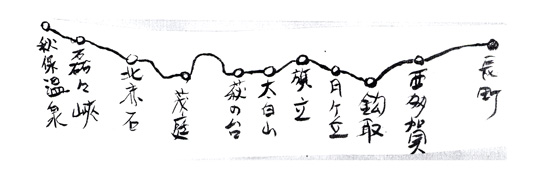 秋保温泉
磊々峡
北赤石
茂庭
萩の台
太白山
旗立
月ケ丘
鈎取
西多賀
長町